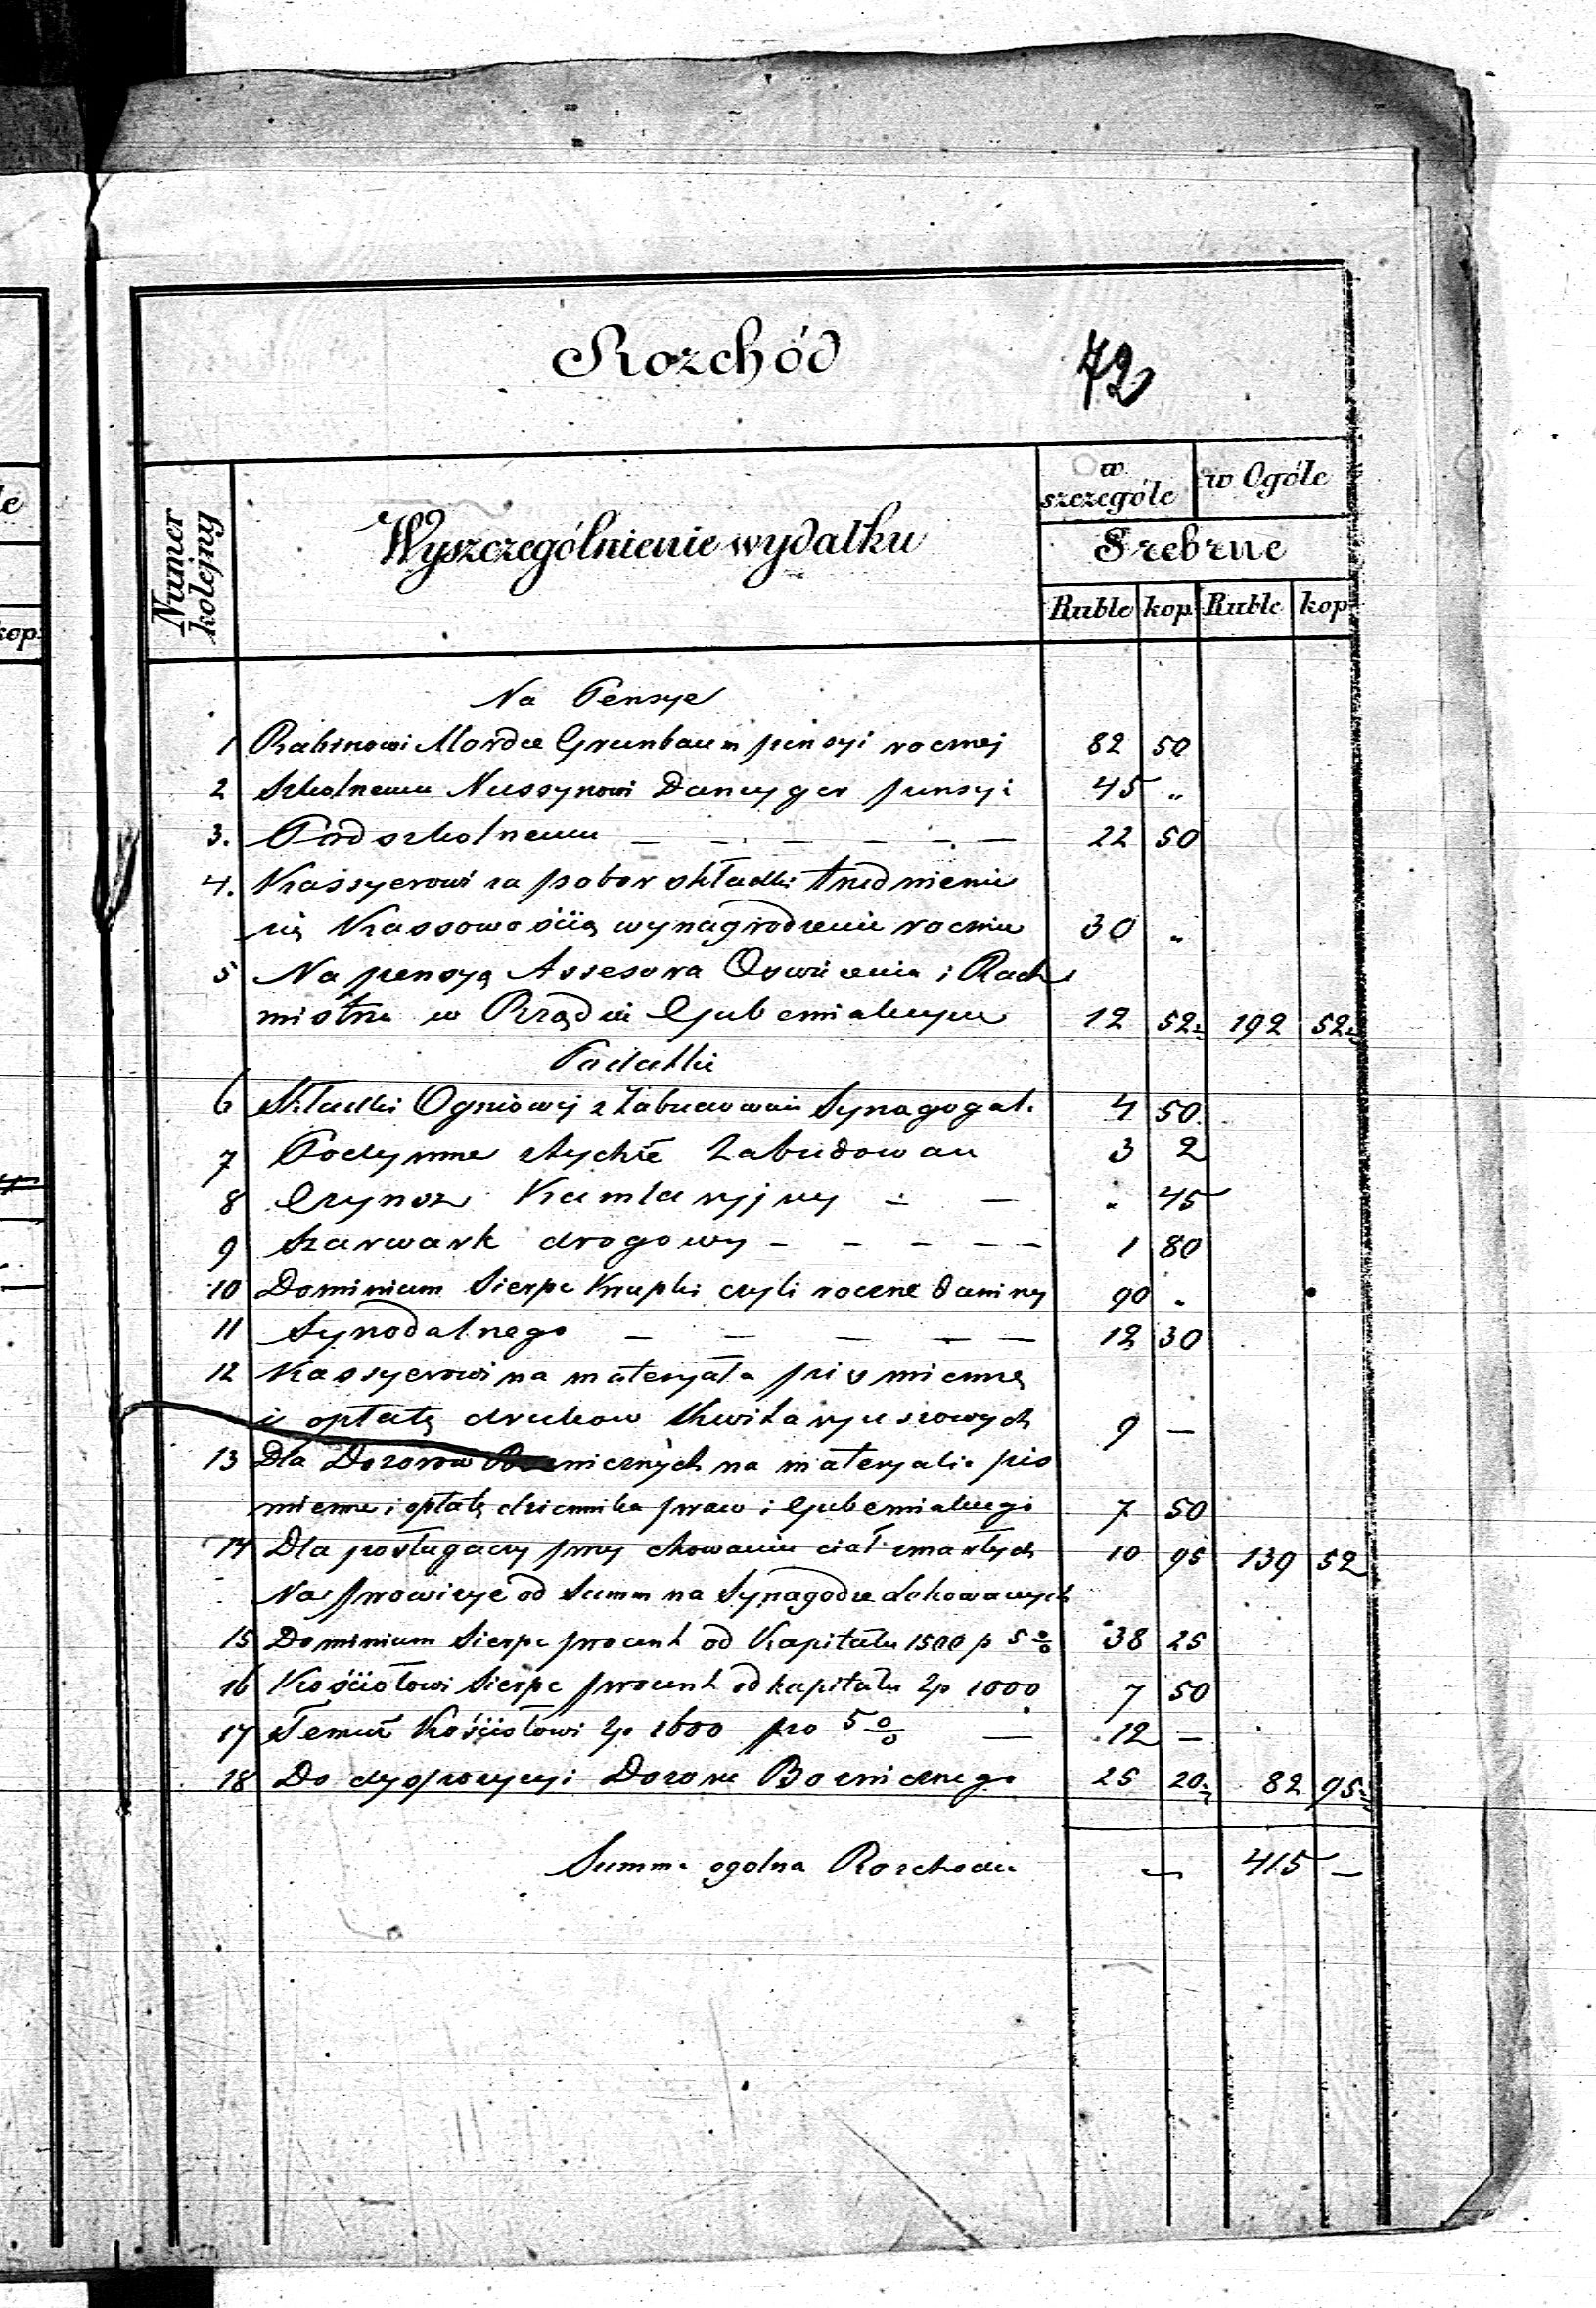 Rozchód 72
Numer kolejny
Wyszczególnienie wydatku
w szczególe
w Ogóle
Srebrne
Ruble kop Ruble kop
le
kop:
Na Pensye
1 Rabinowi Mordce Grunbaum pensyi rocznej 82 50
2 Szkolnemu Nussynowi Dancyger pensyi 45 „
3. Podszkolnemu — — — — — — 22 50
4. Kassyerowi za pobor składki trudnienie
się Kassowością wynagrodzenie roczne 30 „
5 Na pensyą Assesora Oswiecenia i Rach
mistrza w Rządzie Gubernialnym 12 52½ 192 52½
Podatki
6 Składki Ogniowej z Zabudowań Synagogal. 4 50
7 Podymne z tychże Zabudowań 3 2
8 Czynsz Kamlaryjny — — „ 45
9 Szarwark drogowy — — — — — 1 80
10 Dominium Sierpc Krupki czyli roczne daniny 90 „
11 Synodalnego — — — — — 12 30
12 Kassyerowi na materyała piśmienne
i opłatę drukow Kwitaryuszowych 9 —
13 Dla Dozorow Bozniczných na materyały pis
mienne i opłatę dziennika praw i Gubernialnego 7 50
14 Dla posługaczy przy chowaniu ciał zmarłych 10 95 139 52
Na prowizye od Summ na Synagodze lokowanych
15 Dominium Sierpc procent od Kapitału 1500 p 5 % 38 25
16 Kościołowi Sierpc procent od kapitału Zp 1000 7 50
17 Temuż Kościołowi Zp 1600 pro 5 % — 12 —
18 Do dyspozycyi Dozoru Bozniczneg0 25 20½ 82 95½
Summa ogolna Rozchodu — 415 —